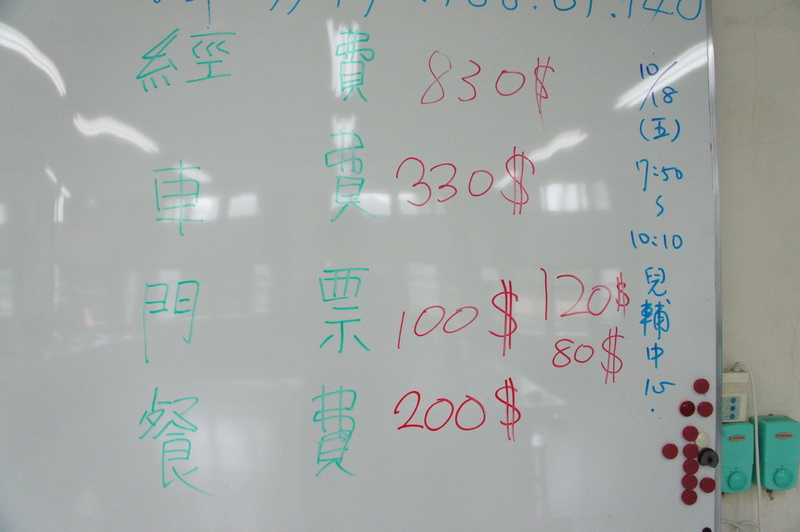 經 費 830$
車 費 330$
門 票 100$ 120$
80$
餐 費 200$
10/18
(五)
7:50
~
10:10
兒輔中心.